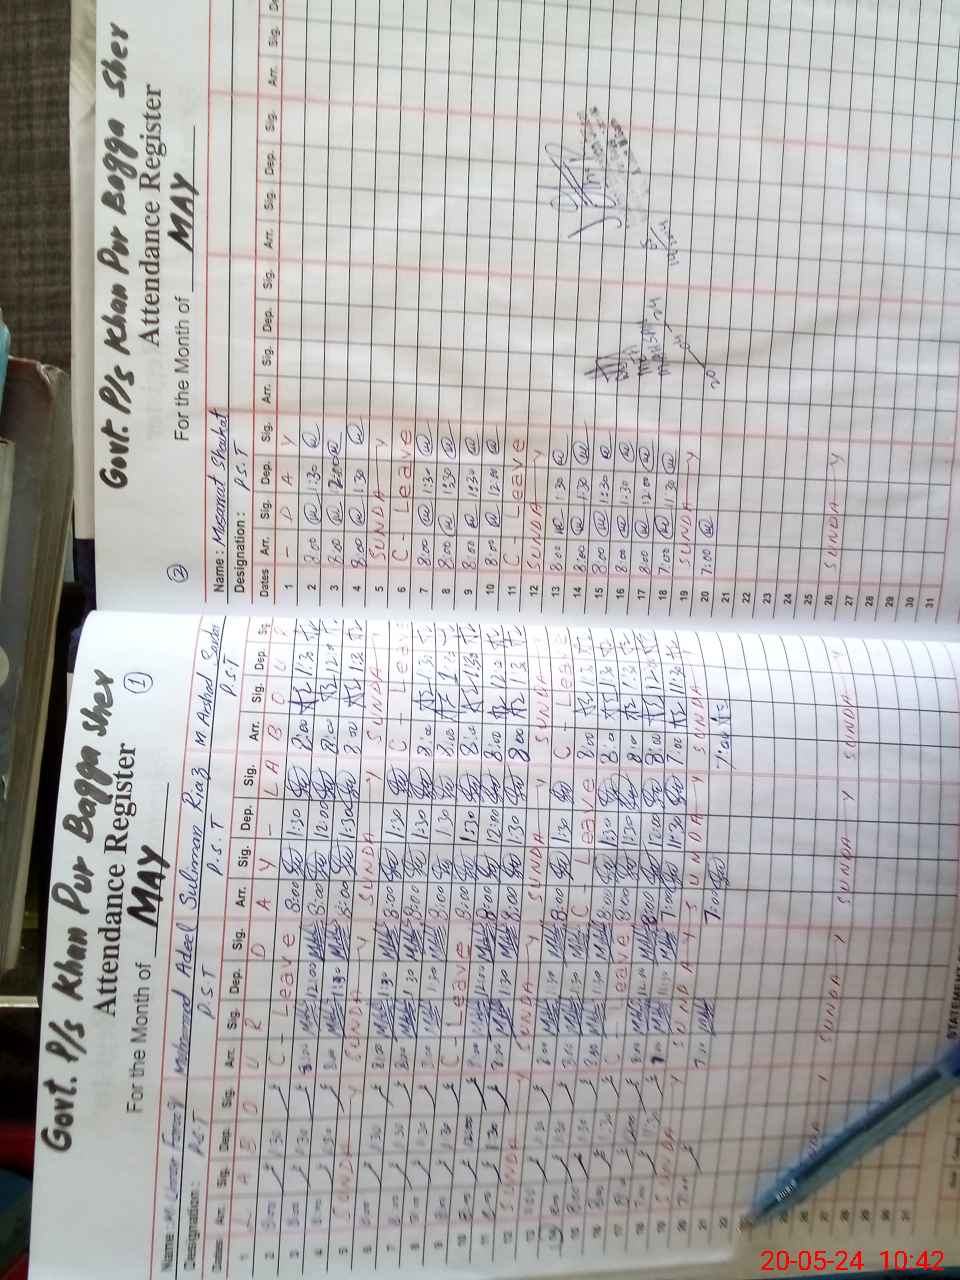 Govt. P/s Khan Pur Bagga Sher
Attendance Register
①
For the Month of MAY
Name: M. Umar Farooq Mohammad Adeel Suliman Riaz M Arshad
Designation: P.S.T P.S.T P.S.T P.S.T
Dates Arr. Sig. Dep. Sig. Arr. Sig. Dep. Sig. Arr. Sig. Dep. Sig. Arr. Sig. Dep.
1 L A B O U R D A Y - L A B O U R
2 8:00 1:30 C - Leave 8:00 1:30 8:00 1:30
3 8:00 1:30 8:00 12:00 8:00 12:00 8:00 12:00
4 8:00 1:30 8:00 1:30 8:00 1:30 8:00 1:30
5 SUNDAY SUNDAY SUNDAY SUNDA
6 8:00 1:30 8:00 1:30 8:00 1:30 C - Leave
7 8:00 1:30 8:00 1:30 8:00 1:30 8:00 1:30
8 8:00 1:30 8:00 1:30 8:00 1:30 8:00
9 8:00 1:30 C - Leave 8:00 1:30 8:00 1:30
10 8:00 12:00 8:00 12:00 8:00 12:00 8:00 12:00
11 8:00 1:30 8:00 1:30 8:00 1:30 8:00 1:30
12 SUNDAY SUNDAY SUNDAY SUNDA
13 8:00 1:30 8:00 1:30 8:00 1:30 C - Leave
14 8:00 1:30 8:00 1:30 C - Leave 8:00 1:30
15 8:00 1:30 8:00 1:30 8:00 1:30 8:00 1:30
16 8:00 1:30 C - Leave 8:00 1:30 8:00 1:30
17 8:00 12:00 8:00 12:00 8:00 12:00 8:00 12:00
18 7:00 11:30 7:00 11:30 7:00 11:30 7:00 11:30
19 SUNDAY SUNDAY SUNDAY SUNDA
20 7:00 7:00 7:00 7:00
21
22
26 SUNDAY SUNDAY SUNDAY
27
28
29
30
31
Govt. P/s Khan Pur Bagga Sher
Attendance Register
②
For the Month of MAY
Name: Musarat Shaukat
Designation: P.S.T
Dates Arr. Sig. Dep. Sig. Arr. Sig. Dep. Sig. Arr. Sig. Dep. Sig. Arr. Sig.
1 - D A Y
2 8:00 1:30
3 8:00 12:00
4 8:00 1:30
5 SUNDAY
6 C - Leave
7 8:00 1:30
8 8:00 1:30
9 8:00 1:30
10 8:00 12:00
11 C - Leave
12 SUNDAY
13 8:00 1:30
14 8:00 1:30
15 8:00 1:30
16 8:00 1:30
17 8:00 12:00
18 7:00 11:30
19 SUNDAY
20 7:00
21
22
23
24
25
26 SUNDAY
27
28
29
30
31
STATEMENT
20-05-24 10:42